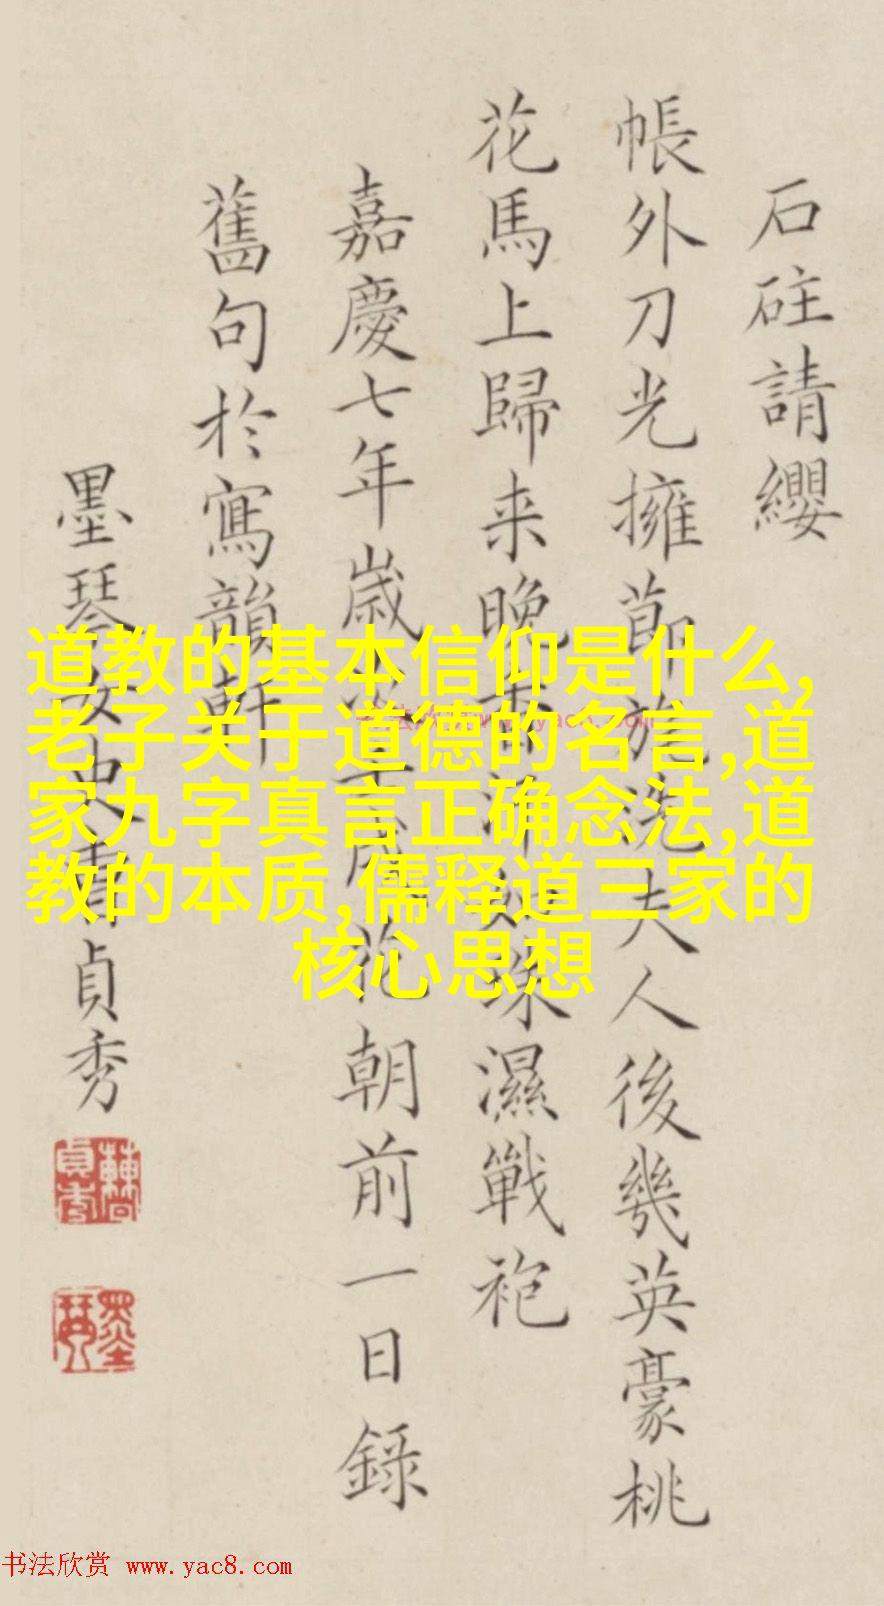 石砫請纓
帳外刀光擁節旄洗夫人後幾英豪桃
花馬上歸来晚如珠濕戰袍
嘉慶七年歲花朝前一日錄
舊句於寫韻軒
墨琴女史曹貞秀
道教的基本信仰是什么,
老子关于道德的名言,道
家九字真言正确念法,道
教的本质,儒释道三家的
核心思想
书法欣赏 www.yac8.com